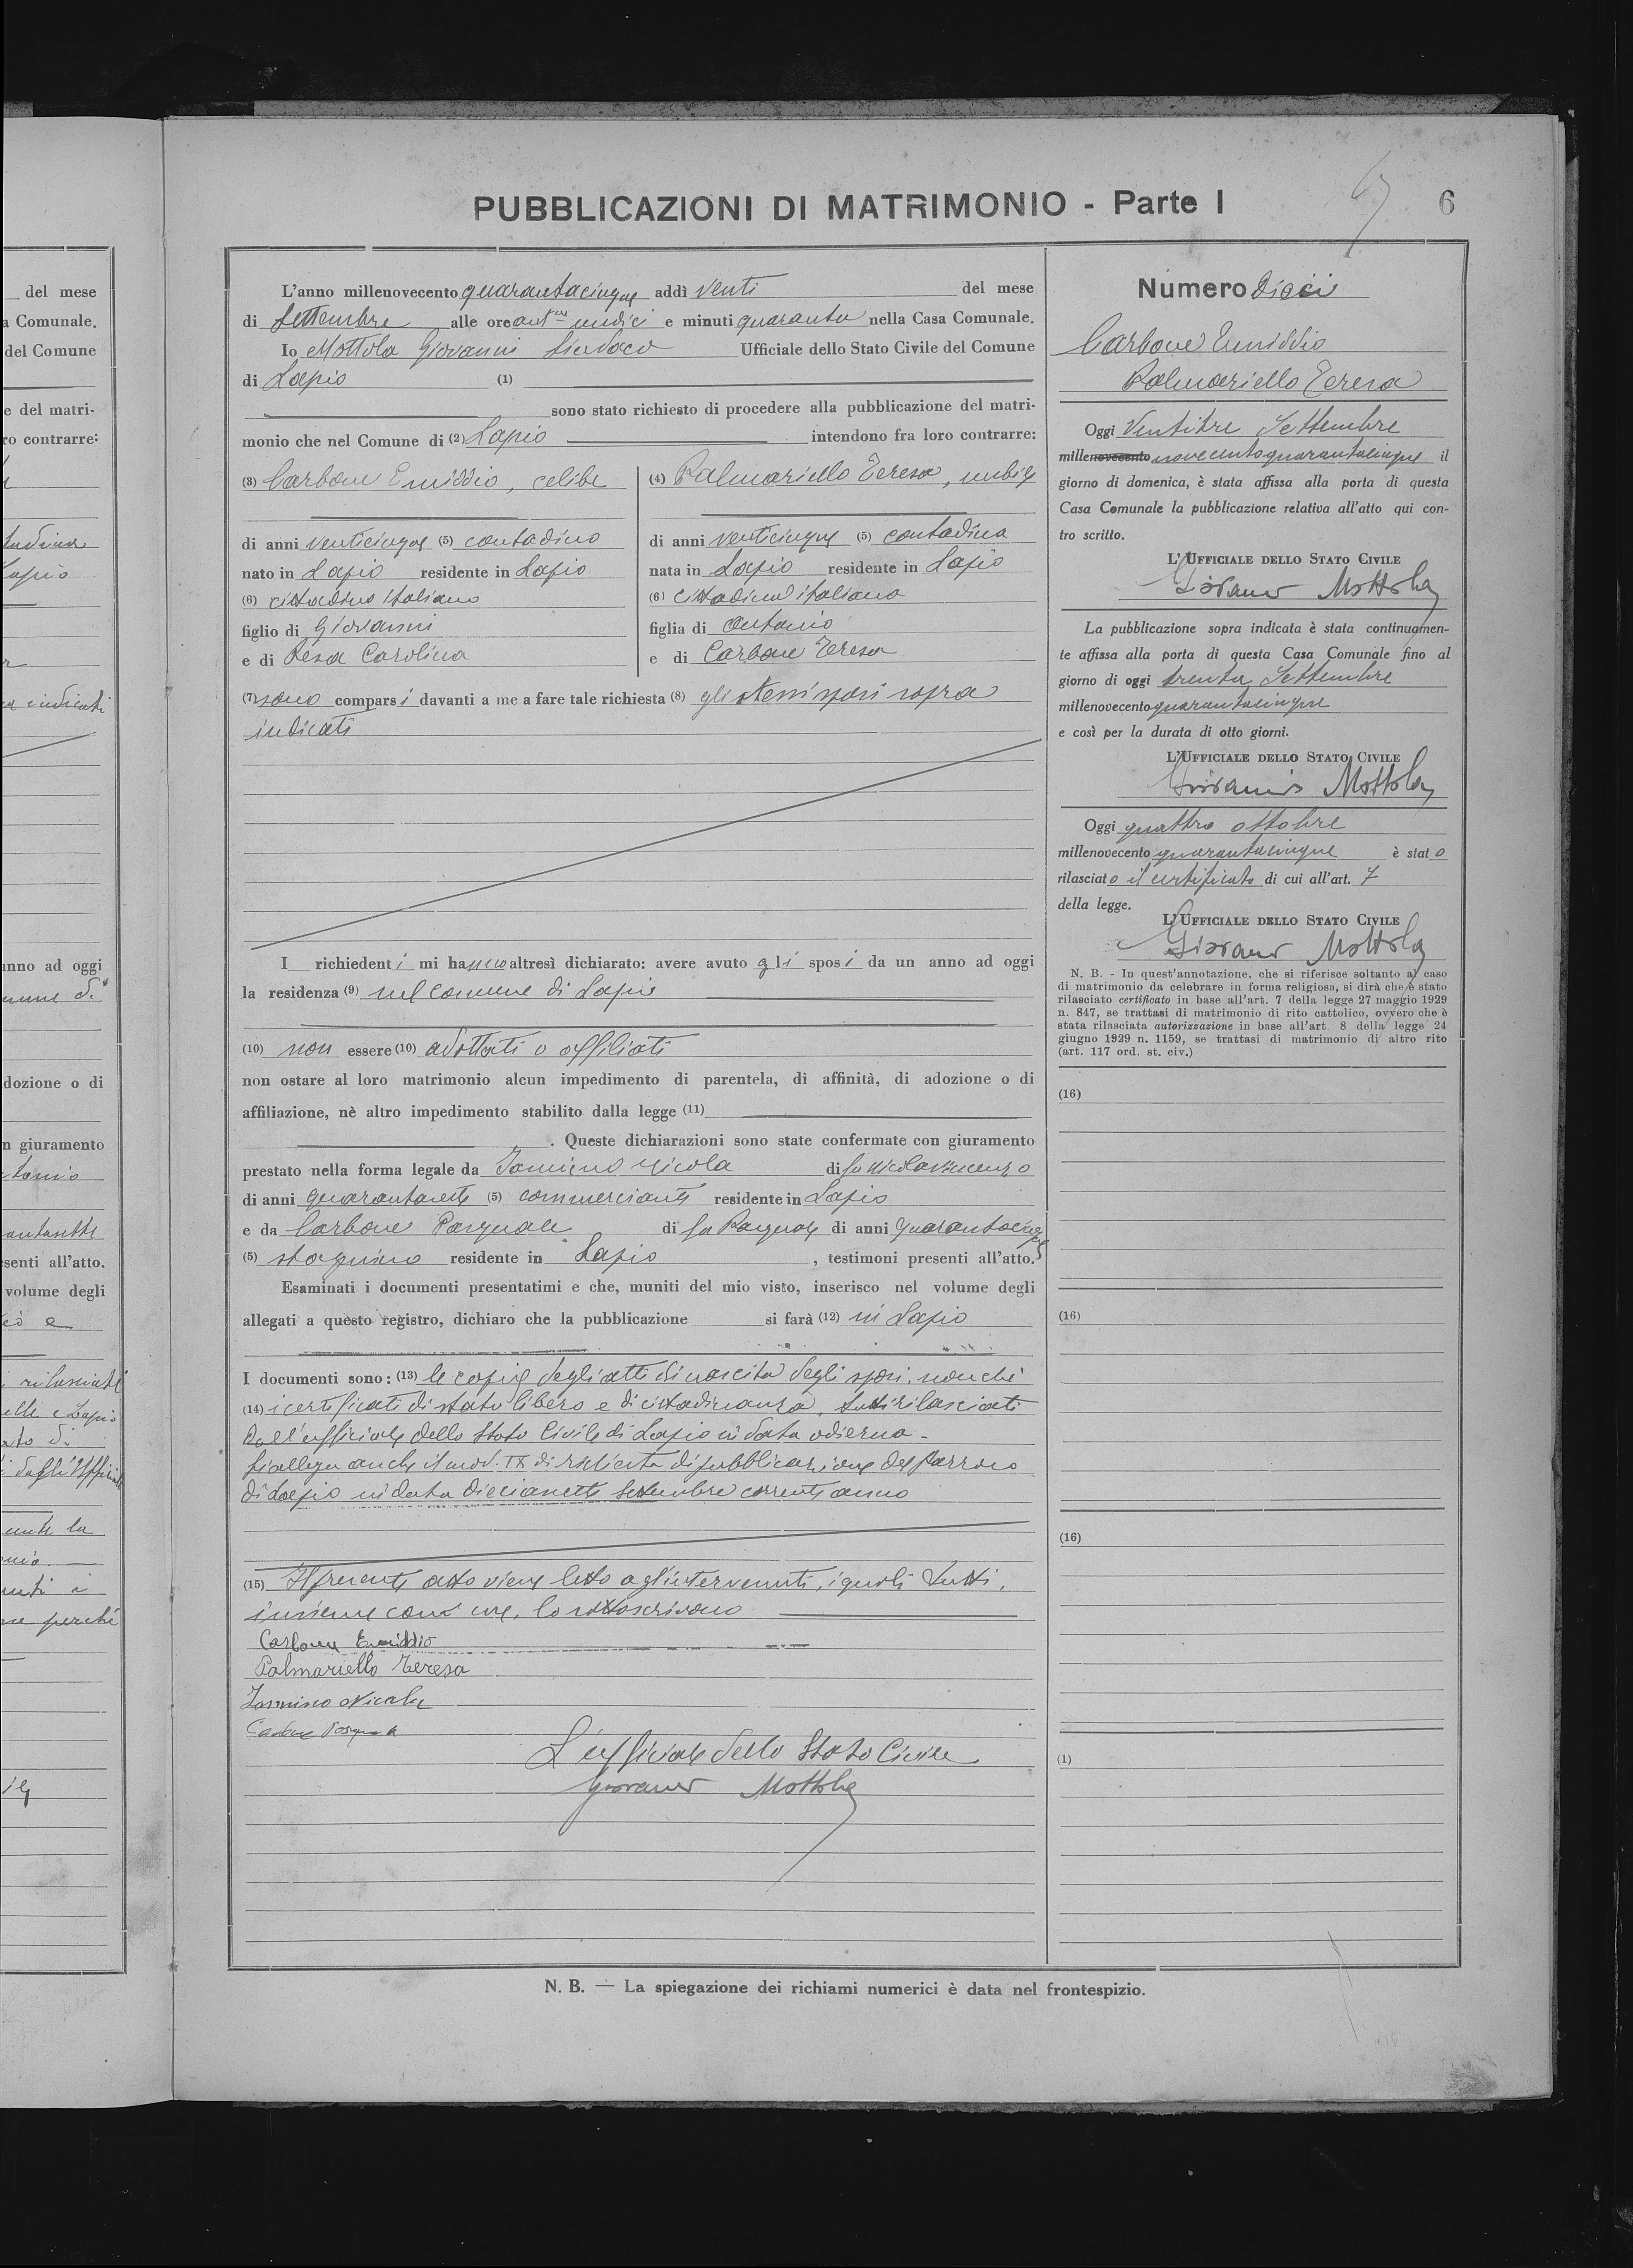 PUBBLICAZIONI DI MATRIMONIO - Parte I
6
L'anno millenovecento quarantacinque addì venti del mese
di Settembre alle ore antne undici e minuti quaranta nella Casa Comunale.
Io Mottola Giovanni Sindaco Ufficiale dello Stato Civile del Comune
di Lapio (1)
sono stato richiesto di procedere alla pubblicazione del matri-
monio che nel Comune di (2) Lapio intendono fra loro contrarre:
(3) Carbone Emiddio, celibe
di anni venticinque (5) contadino
nato in Lapio residente in Lapio
(6) cittadino italiano
figlio di Giovanni
e di Pesa Carolina
(4) Palmariello Teresa, nubile
di anni venticinque (5) contadina
nata in Lapio residente in Lapio
(6) cittadina italiana
figlia di Antonio
e di Carbone Teresa
(7) sono comparsi davanti a me a fare tale richiesta (8) gli stessi sposi sopra
indicati
I richiedenti mi hanno altresì dichiarato: avere avuto gli sposi da un anno ad oggi
la residenza (9) nel comune di Lapio
(10) non essere (10) adottati o affiliati
non ostare al loro matrimonio alcun impedimento di parentela, di affinità, di adozione o di
affiliazione, nè altro impedimento stabilito dalla legge (11)
. Queste dichiarazioni sono state confermate con giuramento
prestato nella forma legale da Nicola di fu Nicolavincenzo
di anni (5) commerciante residente in Lapio
e da Carbone Pasquale di fu Pasquale di anni
(5) stagnino residente in Lapio, testimoni presenti all'atto.
Esaminati i documenti presentatimi e che, muniti del mio visto, inserisco nel volume degli
allegati a questo registro, dichiaro che la pubblicazione si farà (12) in Lapio
I documenti sono: (13) le copie degli atti di nascita degli sposi, nonchè
(14) i certificati di stato libero e di cittadinanza, tutti rilasciati
dall'ufficiale dello Stato Civile di Lapio in data odierna -
Si allega anche il mod. IX di richiesta di pubblicazione del Parroco
di Lapio in data diciannove Settembre corrente anno
(15) Il presente atto viene letto agl'intervenuti, i quali tutti,
insieme con me, lo sottoscrivono
Carbone Emiddio
Palmariello Teresa
Nicola
Carbone Pasquale
L'ufficiale dello Stato Civile
Giovanni Mottola
Numero dieci
Carbone Emiddio
Palmariello Teresa
Oggi Ventitre Settembre
millenovecento novecentoquarantacinque il
giorno di domenica, è stata affissa alla porta di questa
Casa Comunale la pubblicazione relativa all'atto qui con-
tro scritto.
L'UFFICIALE DELLO STATO CIVILE
Giovanni Mottola
La pubblicazione sopra indicata è stata continuamen-
te affissa alla porta di questa Casa Comunale fino al
giorno di oggi trenta Settembre
millenovecento quarantacinque
e così per la durata di otto giorni.
L'UFFICIALE DELLO STATO CIVILE
Giovanni Mottola
Oggi quattro ottobre
millenovecento quarantacinque è stato
rilasciato il certificato di cui all'art. 7
della legge.
L'UFFICIALE DELLO STATO CIVILE
Giovanni Mottola
N. B. - In quest'annotazione, che si riferisce soltanto al caso
di matrimonio da celebrare in forma religiosa, si dirà che è stato
rilasciato certificato in base all'art. 7 della legge 27 maggio 1929
n. 847, se trattasi di matrimonio di rito cattolico, ovvero che è
stata rilasciata autorizzazione in base all'art. 8 della legge 24
giugno 1929 n. 1159, se trattasi di matrimonio di altro rito
(art. 117 ord. st. civ.)
(16)
(16)
(16)
(1)
N. B. — La spiegazione dei richiami numerici è data nel frontespizio.